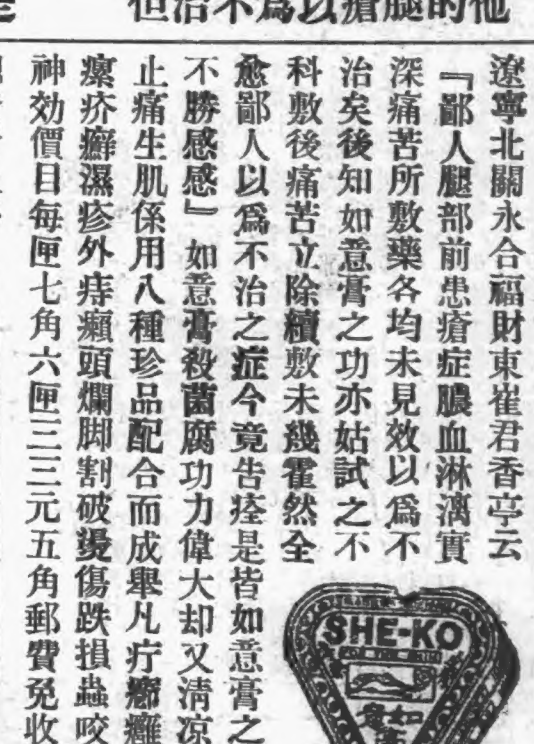 他的腿瘡以爲不治但
遼寧北關永合福財東崔君香亭云
『鄙人腿部前患瘡症膿血淋漓實
深痛苦所敷藥各均未見效以爲不
治矣後知如意膏之功亦姑試之不
科敷後痛苦立除續敷未幾霍然全
愈鄙人以爲不治之症今竟告痊是皆如意膏之
不勝感感』如意膏殺菌腐功力偉大却又清凉
止痛生肌係用八種珍品配合而成舉凡疔癤癰
瘰疥癬濕疹外痔癩頭爛脚割破燙傷跌損蟲咬
神効價目每匣七角六匣三三元五角郵費免收
SHE-KO
FOR THE SKIN
如意膏